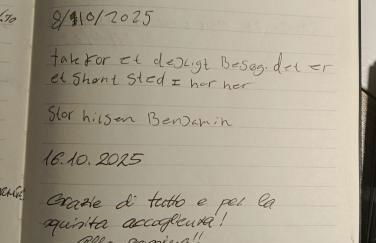 8/10/2025
takk for et dejligt Besøg. det er
et Skønt Sted I har her
Stor hilsen Benjamin
16.10.2025
Grazie di tutto e per la
squisita accoglienza!